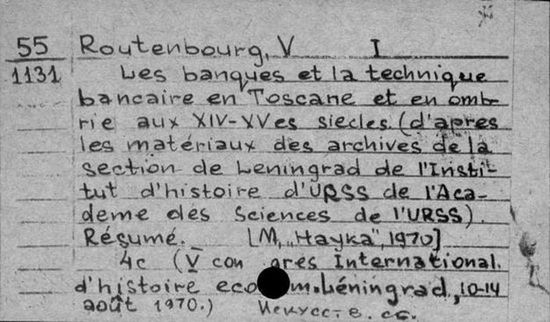 55 Routenbourg, V I
1131 Les banques et la technique
bancaire en Toscane et en omb-
rie aux XIV-XVes siecles (d'apres
les matériaux des archives de la
section de Leningrad de l'Insti-
tut d'histoire d'URSS de l'Aca-
deme des Sciences de l'URSS).
Résumé. [M, „Наука", 1970]
4c (V con grès International
d'histoire eco m. Léningrad, 10-14
août 1970.) Искусств. сб.